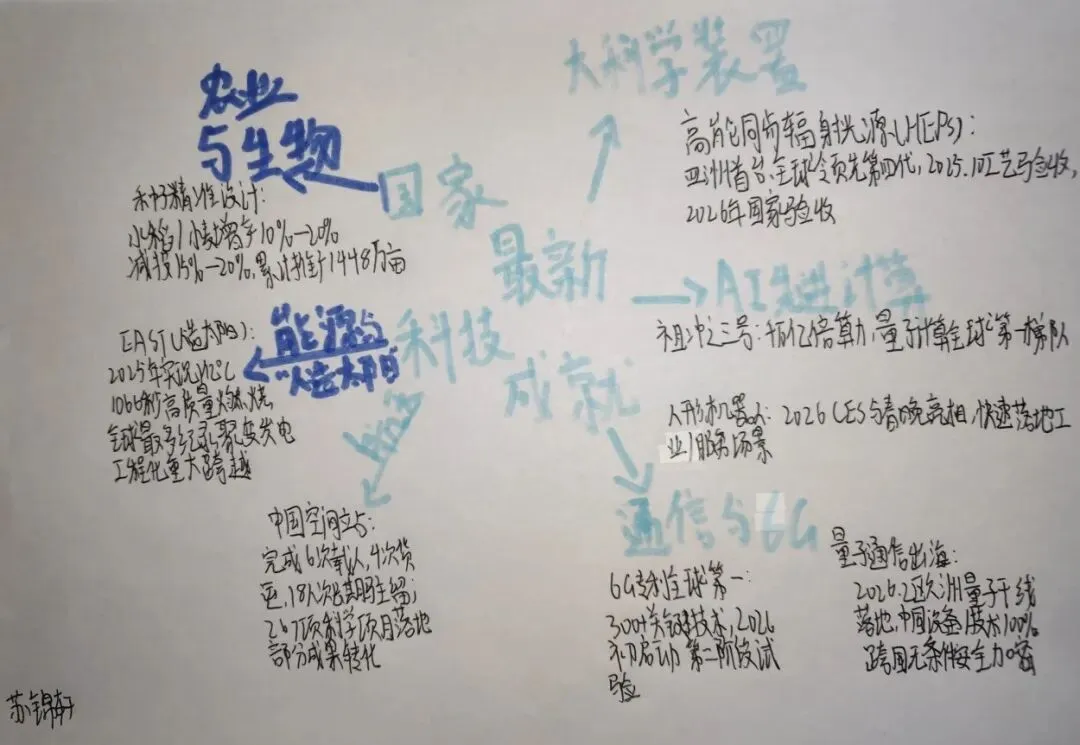 国家
最新
科技
成就
农业
与生物
种子精准设计:
水稻/小麦增产10%—20%
减投15%—20%,累计推广1448万亩
能源与
"人造太阳"
EAST(人造太阳):
2025年实现1亿℃
1066秒高质量燃烧,
全球最多纪录,聚变发电
工程化重大跨越
中国空间站:
完成6次载人,4次货
运,18人次长期驻留;
267项科学项目落地
部分成果转化
大科学装置
高能同步辐射光源(HEPS):
亚洲首台、全球领先第四代,2025.10工艺验收,
2026年国家验收
AI先进计算
祖冲之三号:千万亿倍算力,量子计算全球第一梯队
人形机器人:2026CES与春晚亮相,快速落地工
业/服务场景
通信与6G
6G专利全球第一:
300+关键技术,2026
初启动第二阶段试
验
量子通信出海:
2026.2欧洲量子干线
落地,中国设备/技术100%
跨国无条件安全加密
苏锦轩